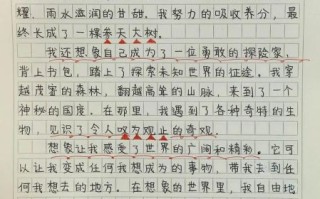 耀，雨水滋润的甘甜。我努力的吸收养分，最
终长成了一棵参天大树。
我还想象自己成为了一位勇敢的探险家，
背上书包，踏上了探索未知世界的征途。我穿
越茂密的森林，翻越高单的山脉，来到了一个
神秘的国度。在那里，我遇到了各种奇特的生
物，见识了令人叹为观止的奇观。
想象让我感受了世界的广阔和精彩。它可
以让我变成任何我想成为的事物，带我去到任
何我想去的地方。在想象的世界里，我自由地